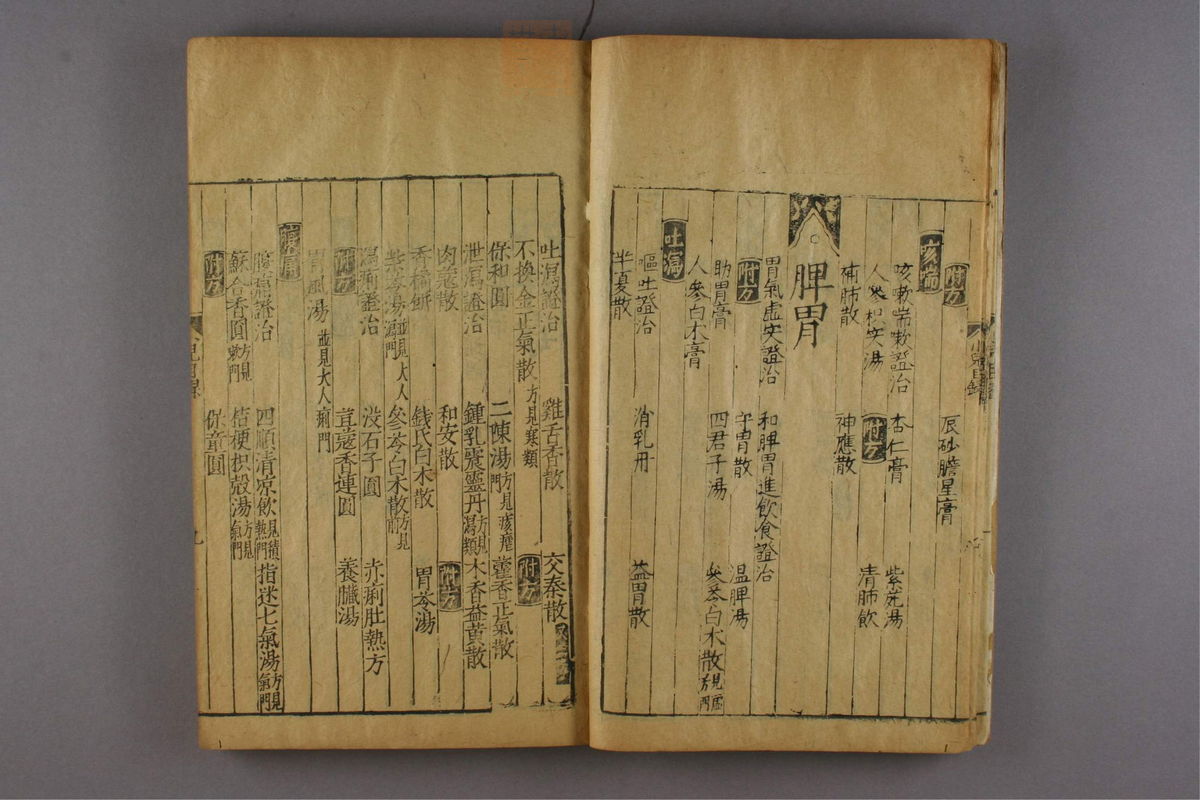 附方 辰砂膽星膏
咳喘
咳嗽喘嗽證治 杏仁膏 紫菀湯
人參和安湯 附方 清肺飲
補肺散 神應散
脾胃
胃氣虛實證治 和脾胃進飲食證治
附方 守胃散 溫脾湯
助胃膏 四君子湯 參苓白朮散方見虛門
人參白朮膏
吐瀉
嘔吐證治 消乳丹 益胃散
半夏散
吐瀉證治 雞舌香散 交泰散
不換金正氣散方見寒類 附方
保和圓 二陳湯方見痎瘧門 藿香正氣散
泄瀉證治 鍾乳震靈丹方見瀉類 木香益黃散
肉蔻散 和安散 附方
香橘餅 錢氏白朮散 胃苓湯
柴苓湯並見大人瀉門 參苓白朮散方見前
瀉痢證治 没石子圓 赤痢肚熱方
附方 荳蔻香連圓 養臟湯
胃風湯並見大人痢門
腹痛證治 四順清凉飲見積熱門 指迷七氣湯方見氣門
蘇合香圓方見 桔梗枳殼湯方見氣門
附方 保童圓
小兒目錄